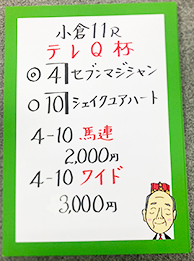 小倉11R
テレQ杯
◎4セブンマジシャン
○10シェイクユアハート
4-10 馬連
2,000円
4-10 ワイド
3,000円